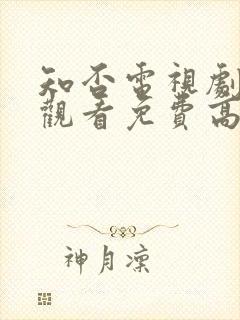 知否電視劇
觀看免費高
神月凜